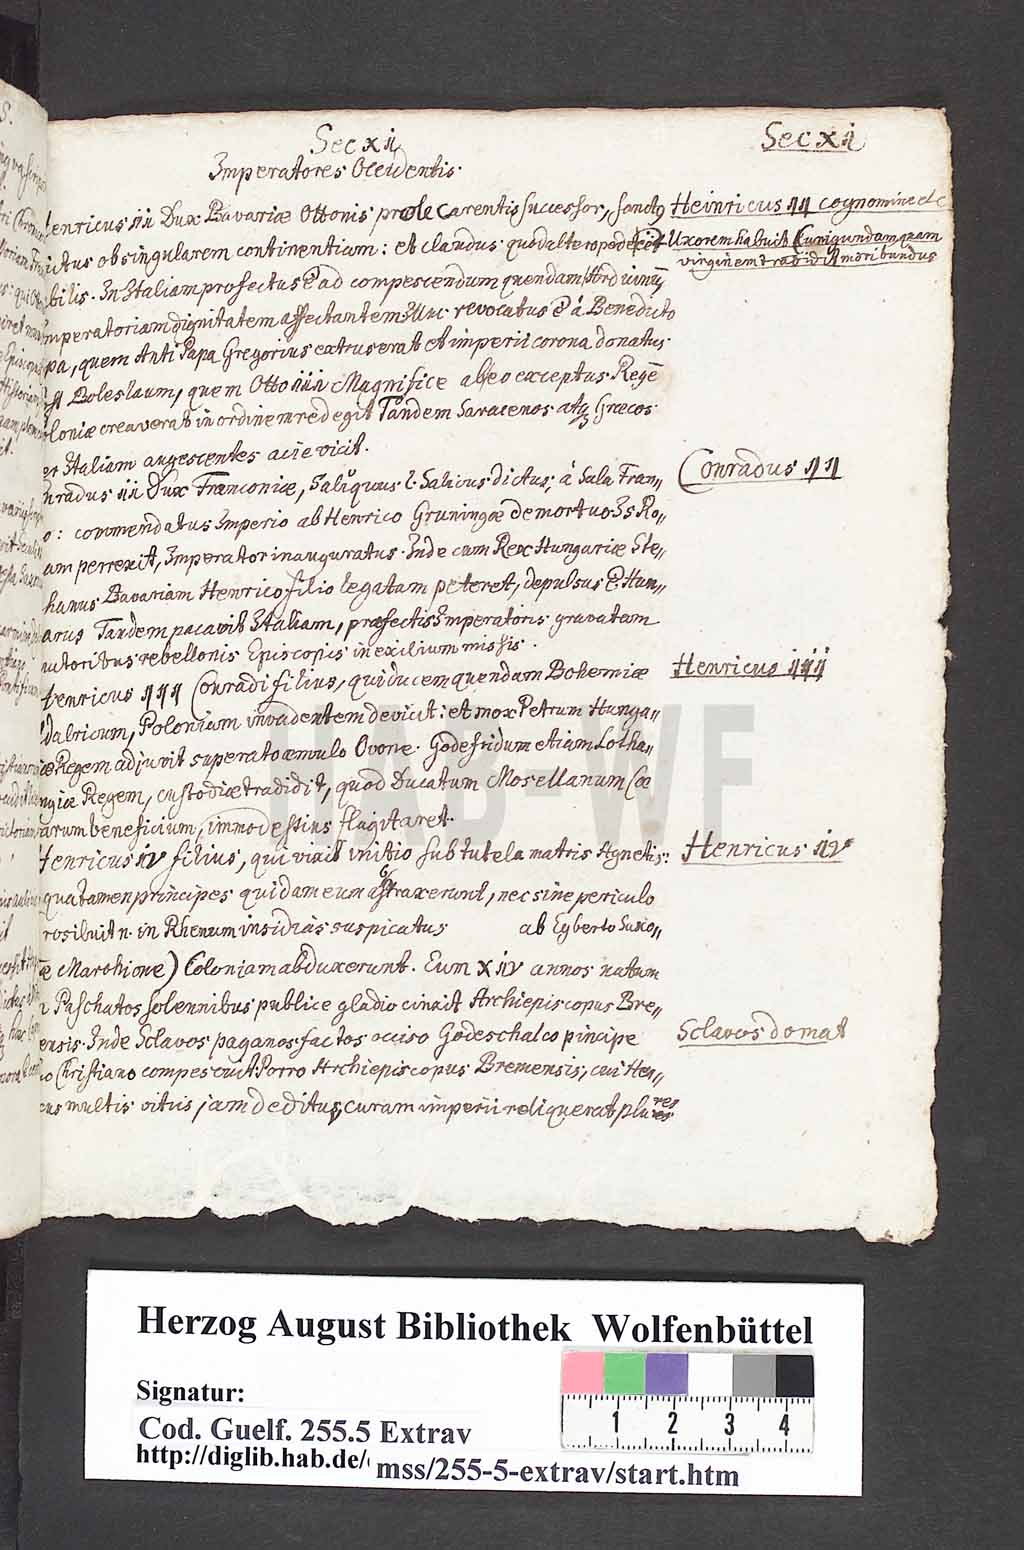 Sec XI
Sec XI
Imperatores Occidentis
Henricus II Dux Bavariæ Ottonis prole carentis successor, Sanctus
Heinricus II cognomine
dictus ob singularem continentium: et claudus quod altero pede
Uxorem habuit Cunigundam quam
virginem tradidit moribundus
bilis. In Italiam profectus ē ad compescendum quendam Ardvinū,
Imperatoriam dignitatem affectantem. Huc revocatus ē á Benedicto
pa, quem Anti Papa Gregorius extruserat et imperii corona donatus.
Boleslaum, quem Otto III Magnifice ab eo exceptus Regē
oloniæ creaverat in ordinem redegit Tandem Saracenos atq Græcos
er Italiam augescentes acie vicit.
nradus II Dux Franconiæ, Saliquus l. Salicus dictus, á Sala Fran„
Conradus II
o: commendatus Imperio ab Henrico Gruningæ demortuo Is Ro„
am perrexit, Imperator inauguratus. Inde cum Rex Hungariæ Ste„
hanus Bavariam Henrico filio legatam peteret, depulsus ē. Hun„
arus Tandem pacavit Italiam, præfectis Imperatoris gravatam
uctoribus rebellonis Episcopis in exilium missis.
Henricus III Conradi filius, qui ducem quendam Bohemiæ
Henricus III
dalricum, Poloniam invadentem devicit: et mox Petrum Hunga„
iæ Regem adjuvit superato æmulo Ovone. Godefridum etiam Lotha„
ngiæ Regem, custodiæ tradidit, quod Ducatum Mosellanum
arum beneficium, immodestius flagitaret.
Henricus IV filius, qui vixit initio sub tutela matris Agnetis:
Henricus IV
qua tamen principes quidam eum abstraxerunt, nec sine periculo
rosiluit n. in Rhenum insidias suspicatus ab Egberto Saxo„
æ Marchione) Coloniam abduxerunt. Eum XIV annos natum
Paschatos solennibus publice gladio cinxit Archiepiscopus Bre„
ensis. Inde Sclavos paganos factos occiso Godeschalco pincipe
Sclavos domat
o Christiano compescuit. Porro Archiepiscopus Bremensis, cui Hen„
cus multis vitiis jam deditus, curam imperii reliquerat plures
res
HAB-WF
Herzog August Bibliothek Wolfenbüttel
Signatur:
Cod. Guelf. 255.5 Extrav
http://diglib.hab.de/
mss/255-5-extrav/start.htm
1 2 3 4